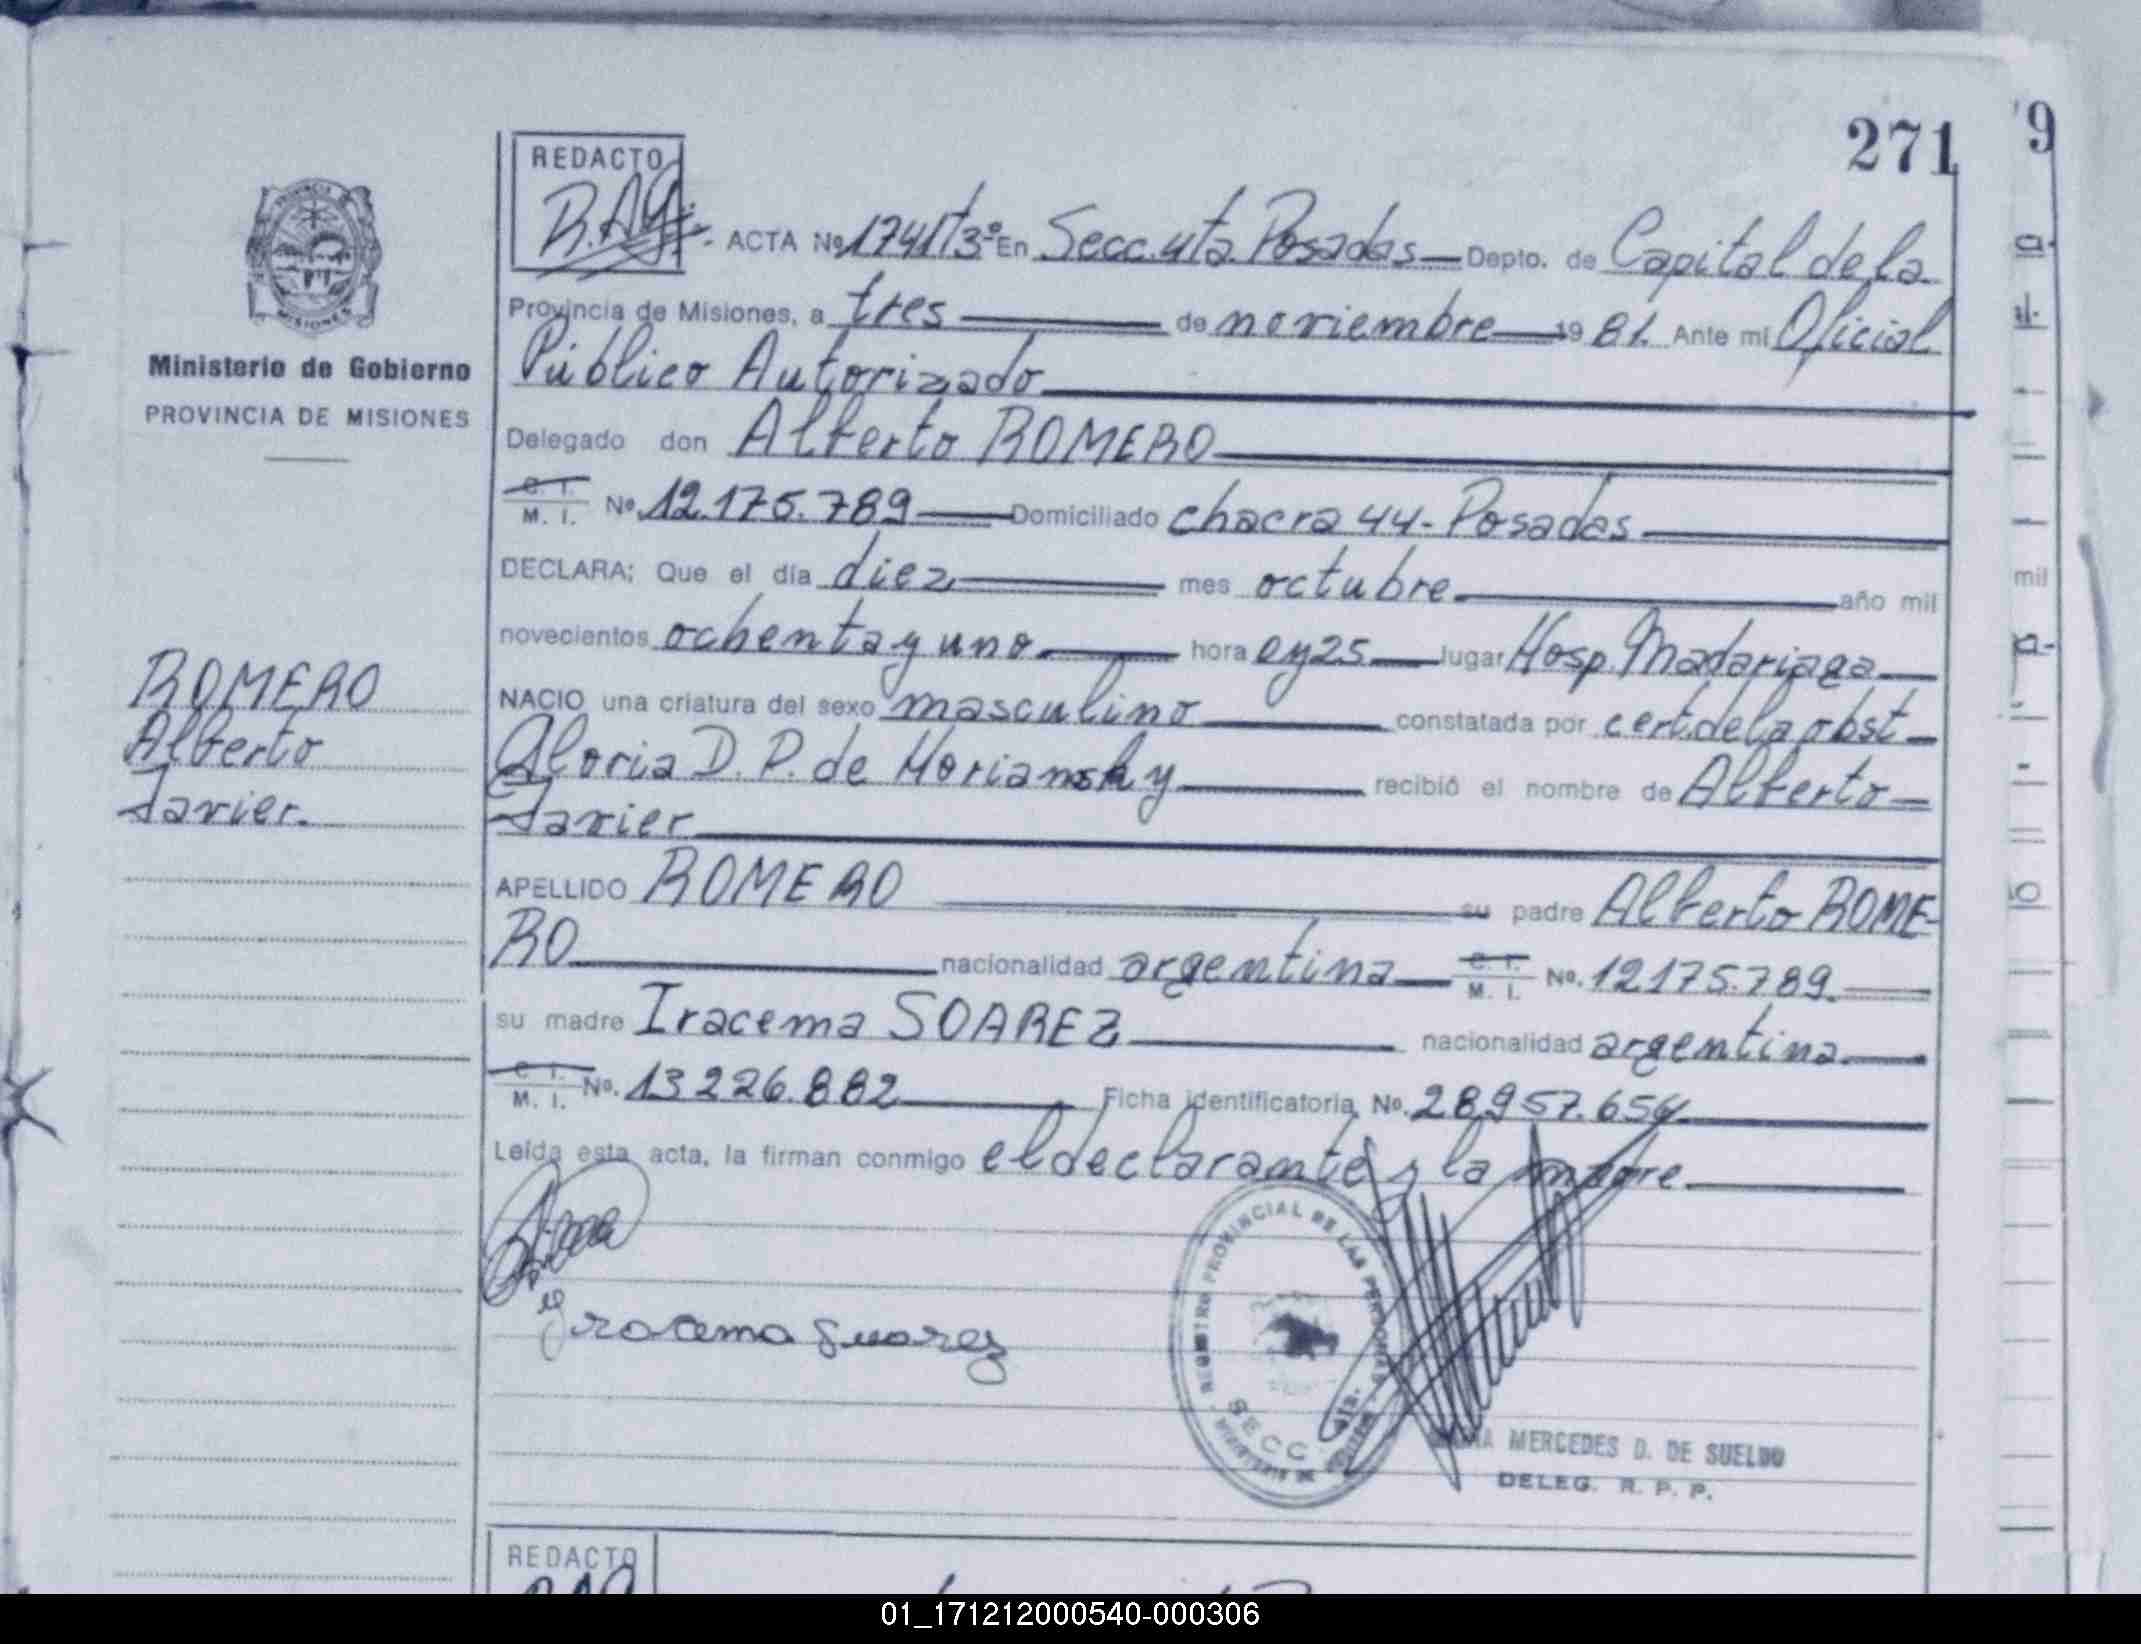 271
9
REDACTO
R.A.G.
ACTA Nº 1741 Tº3º En Secc. 4ta. Posadas Depto. de Capital de la
Provincia de Misiones, a tres de noviembre 19 81. Ante mi Oficial
Público Autorizado
Delegado don Alberto ROMERO
C. I.
M. I. Nº 12.175.789 Domiciliado chacra 44- Posadas
DECLARA; Que el día diez mes octubre año mil
novecientos ochenta y uno hora 0 y 25 lugar Hosp. Madariaga
NACIO una criatura del sexo masculino constatada por cert. de la obst
Gloria D. P. de Moriansky recibió el nombre de Alberto
Javier
APELLIDO ROMERO su padre Alberto ROME-
RO nacionalidad argentina C. I. M. I. Nº. 12175.789.
su madre Iracema SOAREZ nacionalidad argentina
C. I.
M. I. Nº. 13226.882 Ficha identificatoria Nº. 28.957.654
Leída esta acta, la firman conmigo el declarante y la madre
Iracema Suarez
REGISTRO PROVINCIAL DE LAS PERSONAS
SECC. 4ta.
MERCEDES D. DE SUELDO
DELEG. R. P. P.
PROVINCIA
MISIONES
Ministerio de Gobierno
PROVINCIA DE MISIONES
ROMERO
Alberto
Javier.
mil
REDACTO
01_171212000540-000306